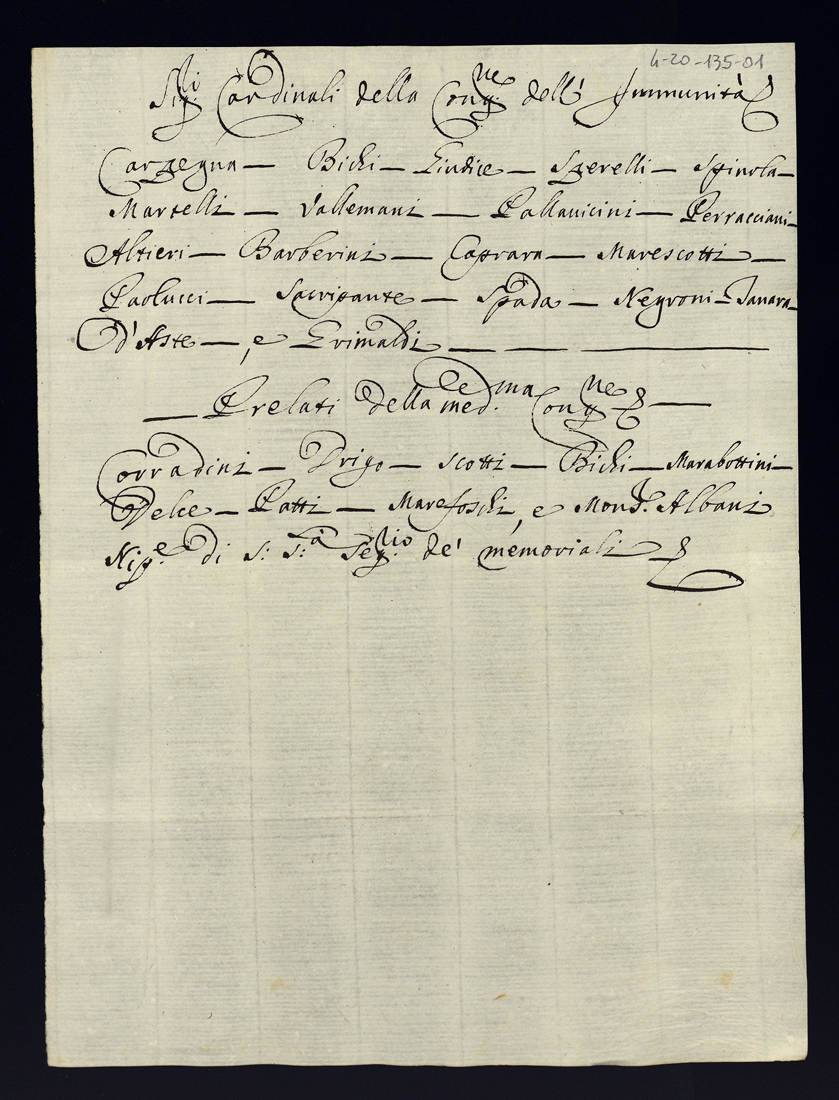 4-20-135-01
Sig.li Cardinali della Cong.ne dell' Immunità
Carpegna — Bichi — Giudice — Sperelli — Spinola —
Martelli — Vallemani — Pallavicini — Ferracciani —
Altieri — Barberini — Caprara — Marescotti —
Paolucci — Sacripante — Spada — Negroni — Tanara —
d'Aste —, e Grimaldi — — —
— Prelati della med.ema Cong.ne —
Corradini — Origo — Scotti — Bichi — Marabottini —
Delce — Patti — Marefoschi, e Mons.r Albani
Nip.e di S: S.tà Seg.rio de' memoriali